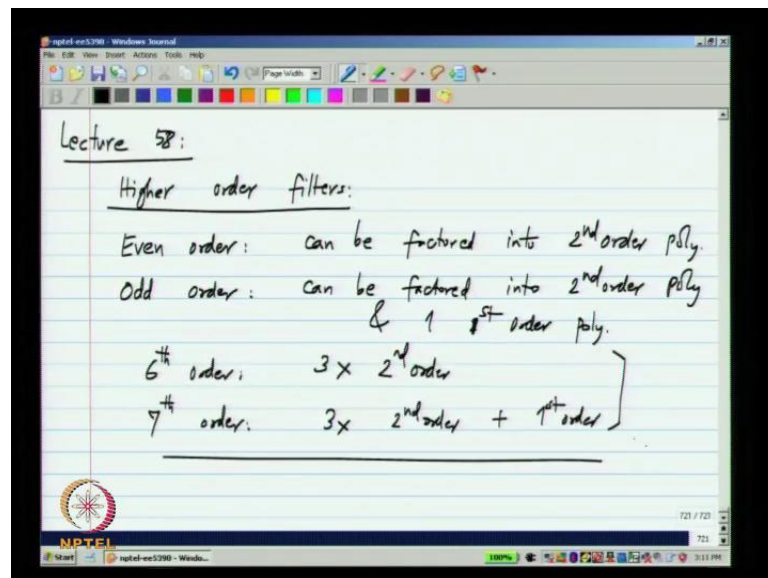 nptel-ee5390 - Windows Journal
File Edit View Insert Actions Tools Help
Page Width
B I
Lecture 58:
Higher order filters:
Even order: can be factored into 2nd order poly.
Odd order: can be factored into 2nd order poly
& 1 1st order poly.
6th order: 3 x 2nd order
7th order: 3x 2nd order + 1st order
721 / 721
721
NPTEL
Start nptel-ee5390 - Windo... 100% 3:11 PM